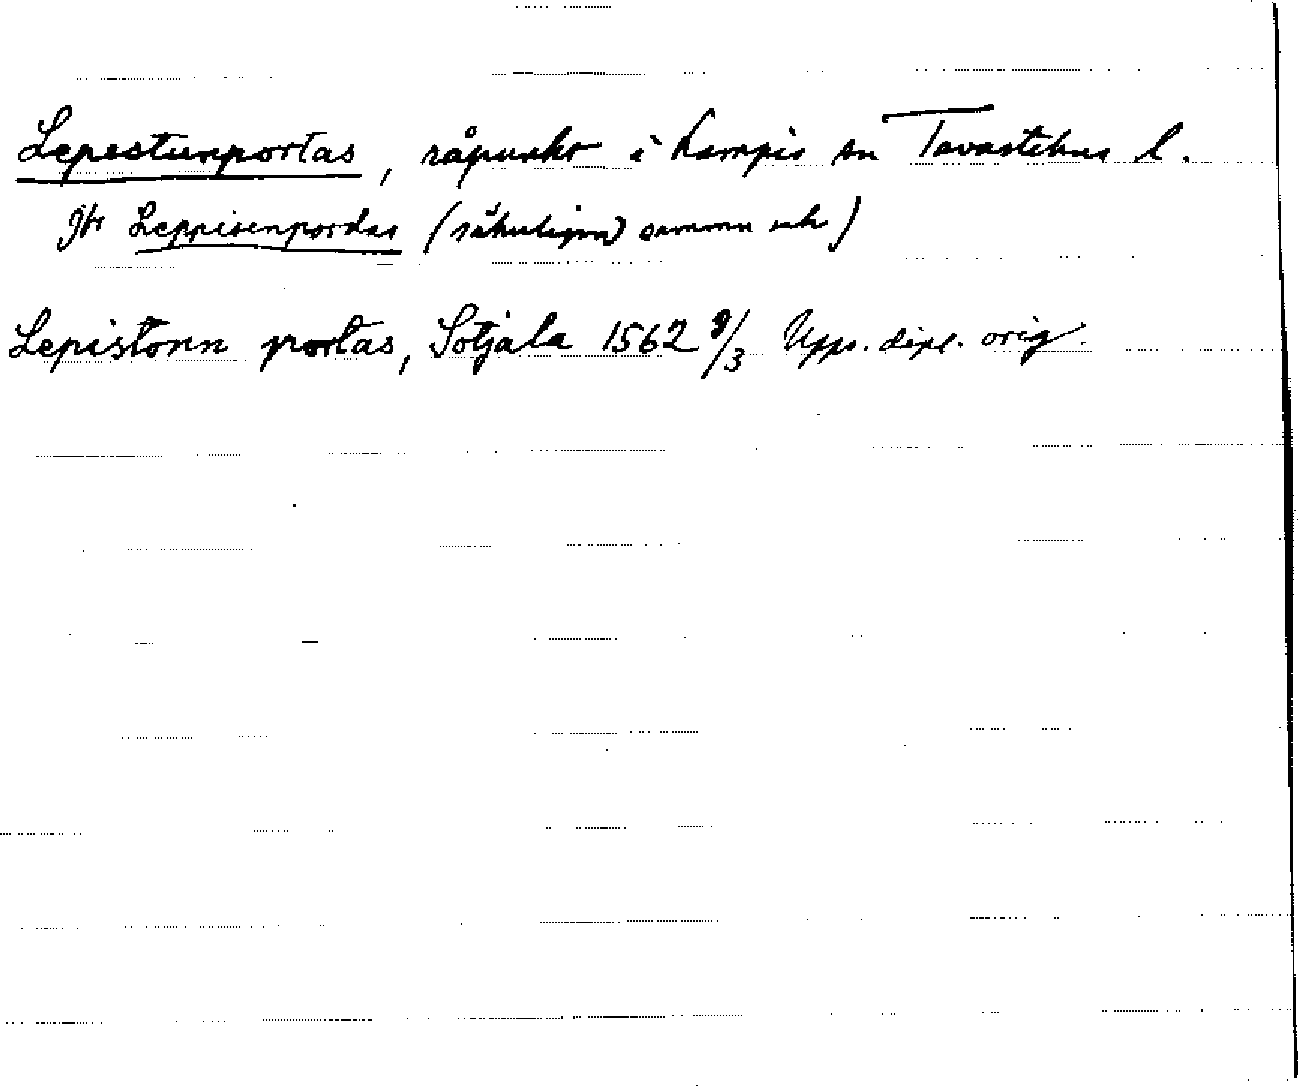 Lepestunportas, råpunkt i Kampis sn Tavastehus l.
Jfr Leppisenpordas (säkerligen samma rå)
Lepistonn portas, Sotjala 1562 9/3 Upps. dipl. orig.